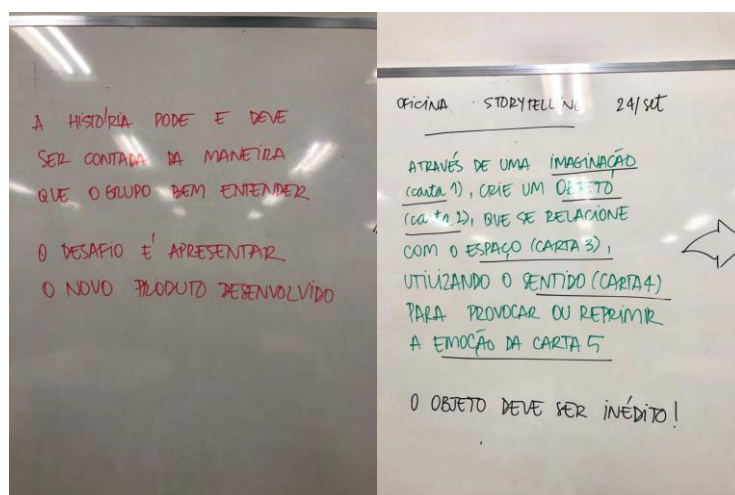 A HISTÓRIA PODE E DEVE
SER CONTADA DA MANEIRA
QUE O GRUPO BEM ENTENDER
O DESAFIO É APRESENTAR
O NOVO PRODUTO DESENVOLVIDO
OFICINA STORYTELLING 24/set
ATRAVÉS DE UMA IMAGINAÇÃO
(carta 1), CRIE UM OBJETO
(carta 2), QUE SE RELACIONE
COM O ESPAÇO (CARTA 3),
UTILIZANDO O SENTIDO (CARTA 4)
PARA PROVOCAR OU REPRIMIR
A EMOÇÃO DA CARTA 5
O OBJETO DEVE SER INÉDITO!